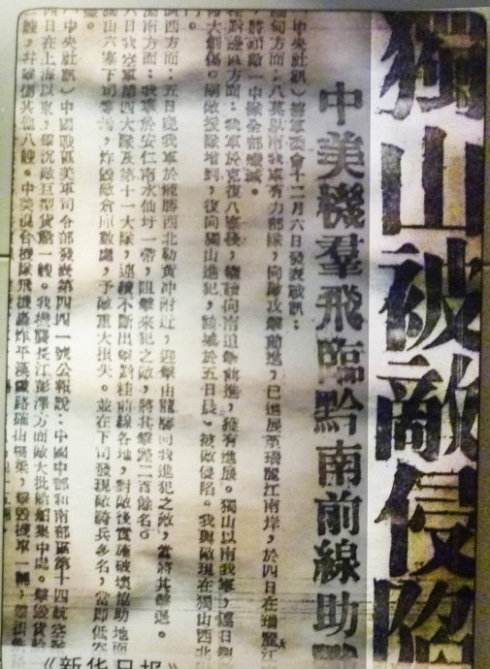 獨山被敵侵陷
中美機羣飛臨黔南前線助戰
中央社訊）軍委會十二月六日發表戰訊：
緬甸方面：八莫以南我軍有力部隊，向敵攻擊前進，已進展至瑞麗江南岸，於四日在瑞麗江
將頑敵一中隊全部殲滅。
黔桂邊區方面：我軍於克復八寨後，續向南追擊前進，續有進展。獨山以南我軍，連日與
敵大創傷。嗣敵援隊增到，復向獨山進犯，該城於五日晨，被敵侵陷。我與敵現在獨山西北
廣西方面：五日晨我軍於龍勝西北勒黃冲附近，迎擊由龍勝向我進犯之敵，當將其擊退。
湖南方面：我軍於安仁南水仙坳一帶，阻擊來犯之敵，將其擊斃二百餘名。
六日我空軍第四大隊及第十一大隊，連續不斷出擊黔桂前線各地，對敵後實施破壞協助地面
獨山六寨下司等地，炸毀敵倉庫數處，予敵重大損失。並在下司發現敵騎兵多名，當即低空
中央社訊）中國戰區美軍司令部發表第四四一號公報說：中國中部和南部區第十四航空隊
四日在上海以東，擊沉敵巨型貨船一艘。我機襲長江彭澤方面敵大批船舶集中處。擊毀貨船
艘，并擊傷其他八艘。中美混合機隊飛機轟炸平漢鐵路確山場柴，擊毀機車一輛，
《新华日报》